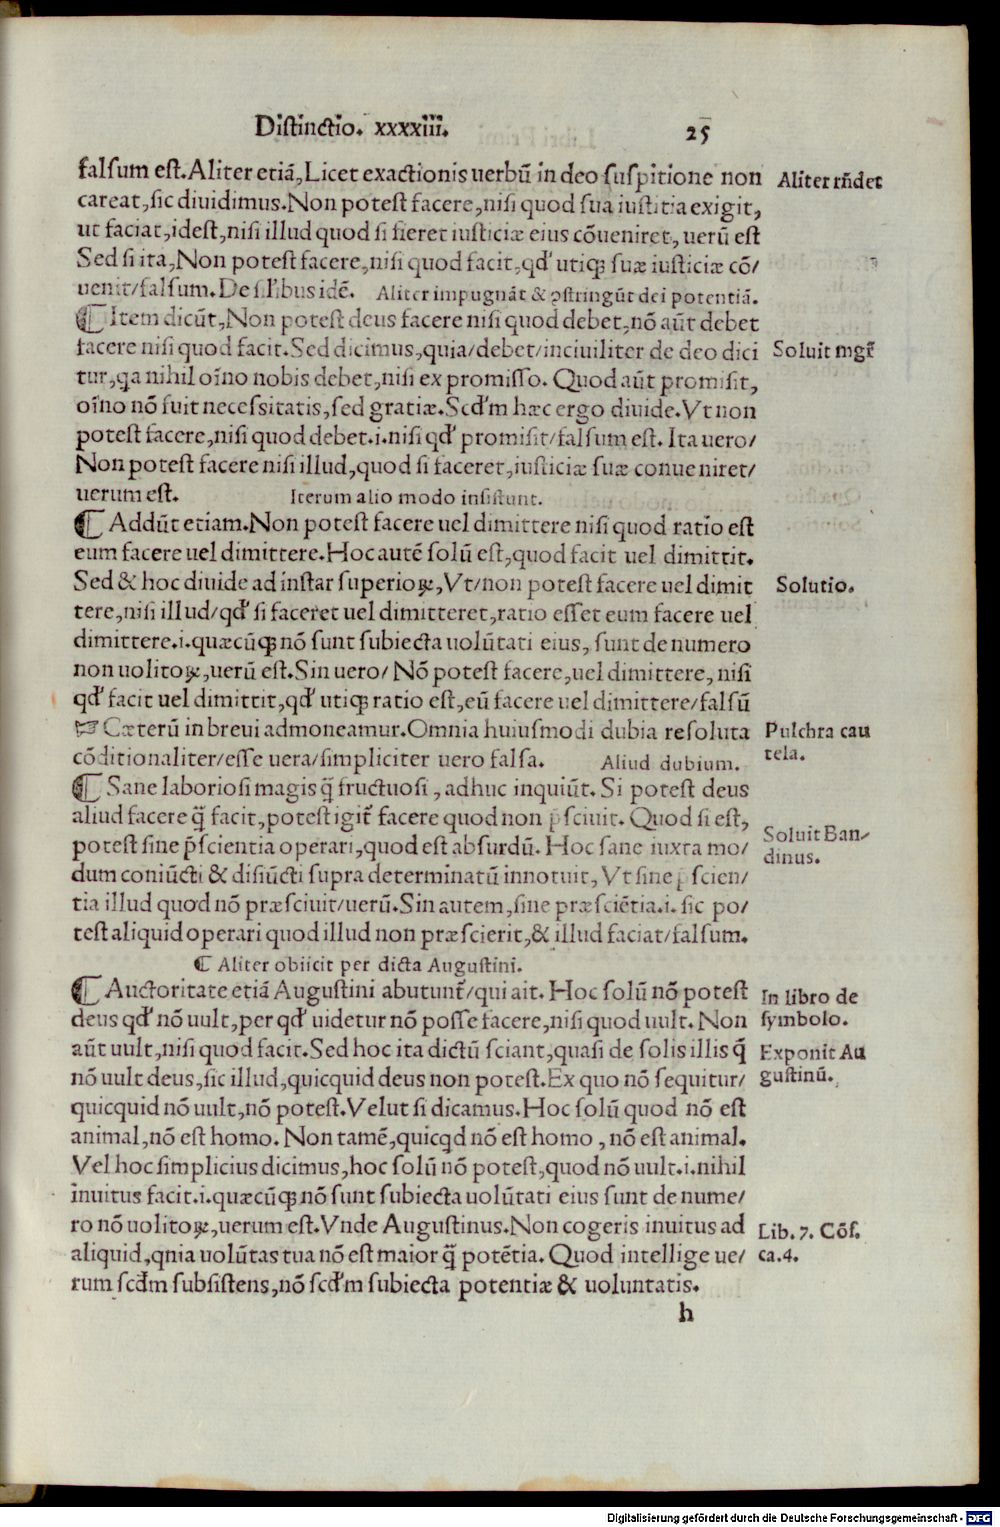 Distinctio. xxxxiii.
25
falsum est. Aliter etiã, Licet exactionis uerbũ in deo suspitione non
Aliter rñdet
careat, sic diuidimus. Non potest facere, nisi quod sua iustitia exigit,
ut faciat, idest, nisi illud quod si fieret iusticiæ eius cõueniret, uerũ est
Sed si ita, Non potest facere, nisi quod facit, qđ utiqꝫ suæ iusticiæ cõ/
uenit/falsum. De similibus idẽ. Aliter impugnãt & ꝯstringũt dei potentiã.
¶ Item dicũt, Non potest deus facere nisi quod debet, nõ aũt debet
facere nisi quod facit. Sed dicimus, quia/debet/inciuiliter de deo dici
Soluit mgr̃
tur, qa nihil oĩno nobis debet, nisi ex promisso. Quod aũt promisit,
oĩno nõ fuit necessitatis, sed gratiæ. Scđm hæc ergo diuide. Vt non
potest facere, nisi quod debet .i. nisi qđ promisit/falsum est. Ita uero/
Non potest facere nisi illud, quod si faceret, iusticiæ suæ conueniret/
uerum est. Iterum alio modo insistunt.
¶ Addũt etiam. Non potest facere uel dimittere nisi quod ratio est
eum facere uel dimittere. Hoc autẽ solũ est, quod facit uel dimittit.
Sed & hoc diuide ad instar superioꝝ, Vt/non potest facere uel dimit
Solutio.
tere, nisi illud/qđ si faceret uel dimitteret, ratio esset eum facere uel
dimittere .i. quæcũqꝫ nõ sunt subiecta uolũtati eius, sunt de numero
non uolitoꝝ, uerũ est. Sin uero/ Nõ potest facere, uel dimittere, nisi
qđ facit uel dimittit, qđ utiqꝫ ratio est, eũ facere uel dimittere/falsũ
☞ Cæterũ in breui admoneamur. Omnia huiusmodi dubia resoluta
Pulchra cau
tela.
cõditionaliter/esse uera/simpliciter uero falsa. Aliud dubium.
¶ Sane laboriosi magis q̃ fructuosi, adhuc inquiũt. Si potest deus
aliud facere q̃ facit, potest igit̃ facere quod non p̃sciuit. Quod si est,
Soluit Ban/
dinus.
potest sine p̃scientia operari, quod est absurdũ. Hoc sane iuxta mo/
dum coniũcti & disiũcti supra determinatũ innotuit, Vt sine p̃scien/
tia illud quod nõ præsciuit/uerũ. Sin autem, sine præsciẽtia .i. sic po/
test aliquid operari quod illud non præscierit, & illud faciat/falsum.
¶ Aliter obiicit per dicta Augustini.
¶ Auctoritate etiã Augustini abutunt̃/qui ait. Hoc solũ nõ potest
In libro de
symbolo.
deus qđ nõ uult, per qđ uidetur nõ posse facere, nisi quod uult. Non
aũt uult, nisi quod facit. Sed hoc ita dictũ sciant, quasi de solis illis q̃
Exponit Au
gustinũ.
nõ uult deus, sic illud, quicquid deus non potest. Ex quo nõ sequitur/
quicquid nõ uult, nõ potest. Velut si dicamus. Hoc solũ quod nõ est
animal, nõ est homo. Non tamẽ, quicqd nõ est homo, nõ est animal.
Vel hoc simplicius dicimus, hoc solũ nõ potest, quod nõ uult .i. nihil
inuitus facit .i. quæcũqꝫ nõ sunt subiecta uolũtati eius sunt de nume/
ro nõ uolitoꝝ, uerum est. Vnde Augustinus. Non cogeris inuitus ad
Lib. 7. Cõf.
ca. 4.
aliquid, qnia uolũtas tua nõ est maior q̃ potẽtia. Quod intellige ue/
rum scđm subsistens, nõ scđm subiecta potentiæ & uoluntatis.
h
Digitalisierung gefördert durch die Deutsche Forschungsgemeinschaft - DFG